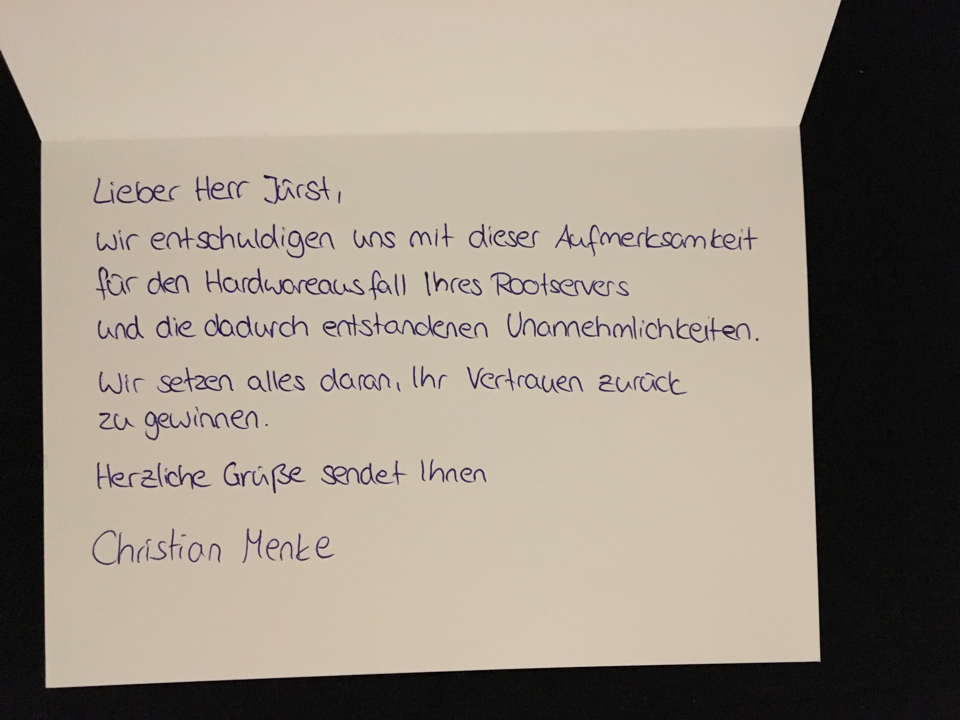 Lieber Herr Jürst,
wir entschuldigen uns mit dieser Aufmerksamkeit
für den Hardwareausfall Ihres Rootservers
und die dadurch entstandenen Unannehmlichkeiten.
Wir setzen alles daran, Ihr Vertrauen zurück
zu gewinnen.
Herzliche Grüße sendet Ihnen
Christian Menke